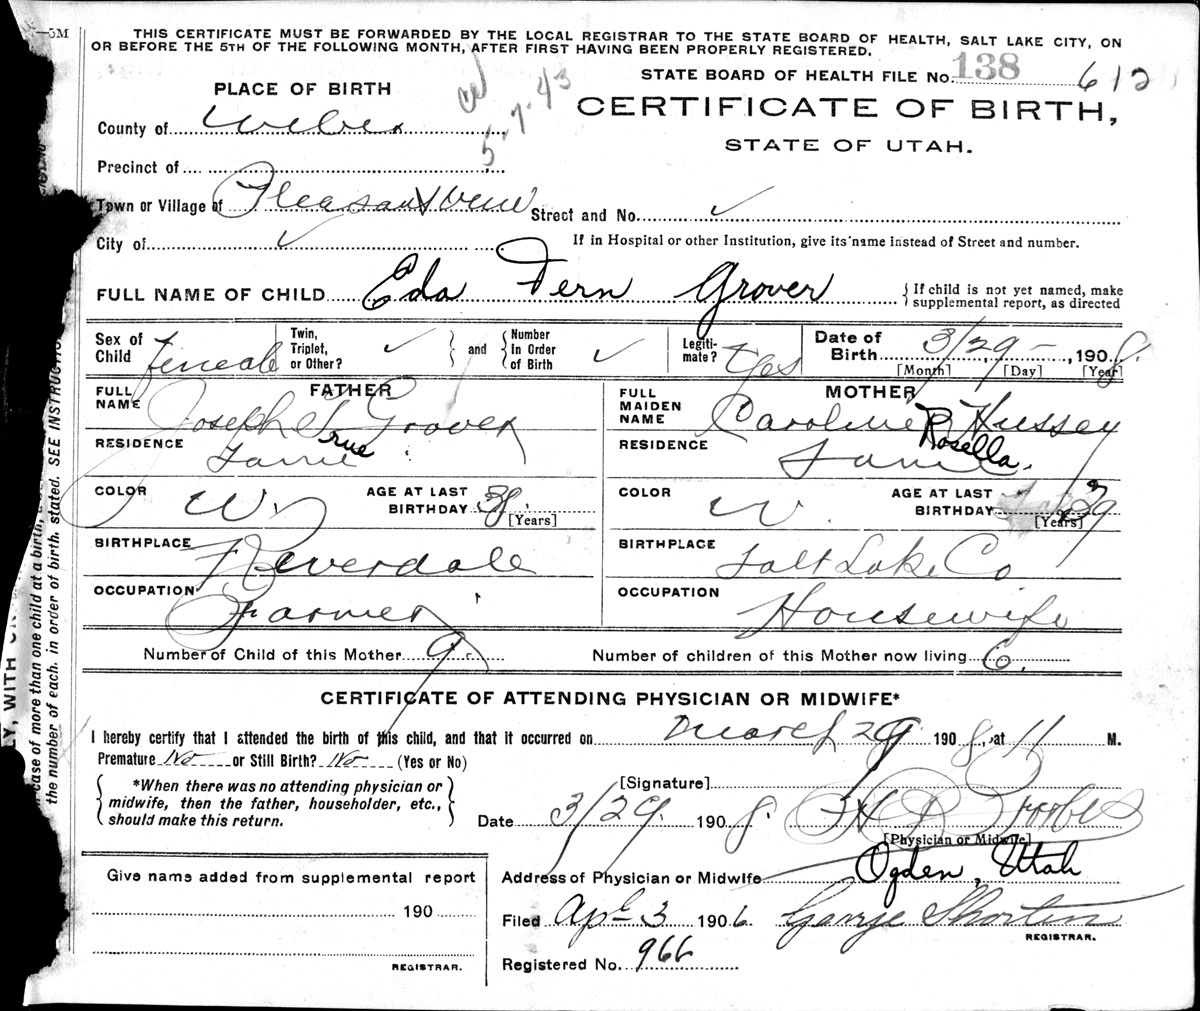 —5M
THIS CERTIFICATE MUST BE FORWARDED BY THE LOCAL REGISTRAR TO THE STATE BOARD OF HEALTH, SALT LAKE CITY, ON
OR BEFORE THE 5TH OF THE FOLLOWING MONTH, AFTER FIRST HAVING BEEN PROPERLY REGISTERED.
STATE BOARD OF HEALTH FILE No. 138 612
PLACE OF BIRTH
5.7.43
CERTIFICATE OF BIRTH,
STATE OF UTAH.
County of Weber
Precinct of
Town or Village of Pleasant View Street and No. ✓
City of ✓ If in Hospital or other Institution, give its name instead of Street and number.
FULL NAME OF CHILD Eda Fern Grover { If child is not yet named, make supplemental report, as directed
Sex of Child female Twin, Triplet, or Other? ✓ } and { Number In Order of Birth ✓ Legiti-mate? Yes Date of Birth 3/29 – , 1908.
[Month] [Day] [Year]
FATHER MOTHER
FULL NAME Joseph T Grover FULL MAIDEN NAME Caroline R Hussey
True Rosella
RESIDENCE Same RESIDENCE Same.
COLOR W. AGE AT LAST BIRTHDAY 38. [Years] COLOR W. AGE AT LAST BIRTHDAY 39 [Years]
BIRTHPLACE Riverdale BIRTHPLACE Salt Lake Co
OCCUPATION Farmer OCCUPATION Housewife
Number of Child of this Mother 9 Number of children of this Mother now living 6.
CERTIFICATE OF ATTENDING PHYSICIAN OR MIDWIFE*
I hereby certify that I attended the birth of this child, and that it occurred on March 29 1908, at 11 M.
Premature No or Still Birth? No (Yes or No)
{ *When there was no attending physician or midwife, then the father, householder, etc., should make this return. }
[Signature]
Date 3/29. 1908.
[Physician or Midwife]
Give name added from supplemental report
190
REGISTRAR.
Address of Physician or Midwife Ogden, Utah
Filed Apl 3 1906. George Shorten
REGISTRAR.
Registered No. 966
case of more than one child at a birth,
the number of each, in order of birth, stated. SEE INSTRUC
LY, WITH